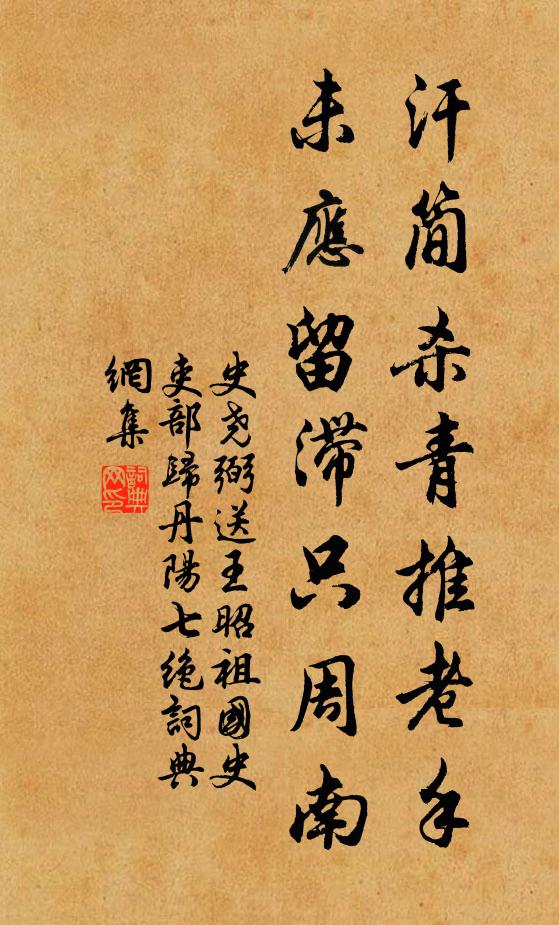 汗簡杀青推老手
未應留滯只周南
史尧弼送王昭祖國史
吏部歸丹陽七绝詞典
網集
詞典
网印